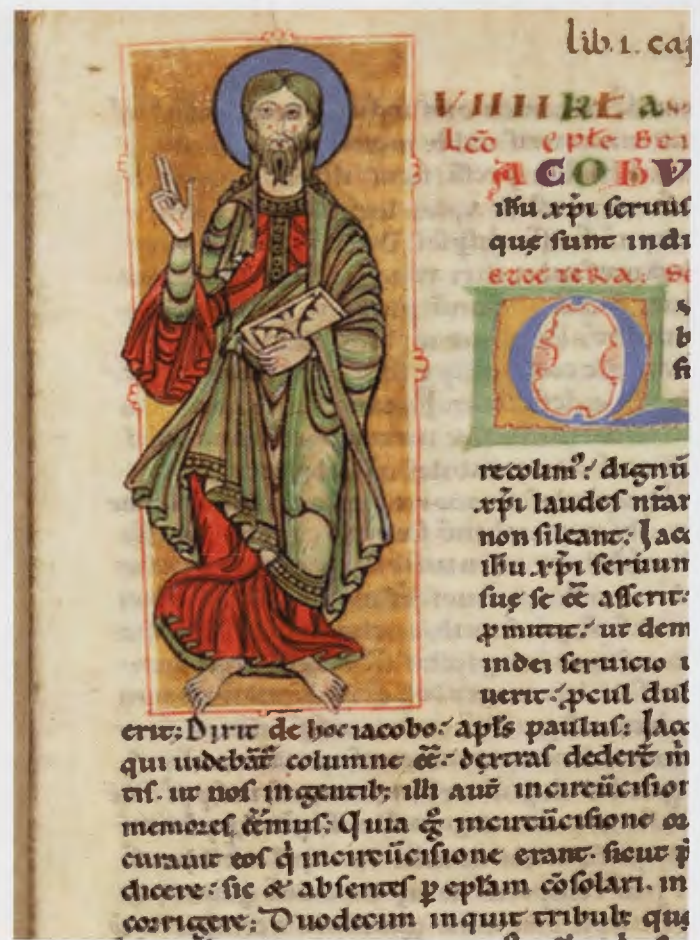 lib. 1. cap
VIIII KƚA
Lc̄o epłe Be
ACOBV
ihu xp̄i seruus
quę sunt indi
et cetera. Se
Q
recolim᷒: dignū
xp̄i laudes nr̄ar
non sileant. Jac
ihu xp̄i seruum
suę se eē asserit.
ꝓmittit. ut dem
indei seruicio
uerit. pcul dub
erit; Dixit de hoc iacobo: apłs paulus: Jaco
qui uidebāt᷒ columne eē: dextras dedert̄ m
tis. ut nos in gentib; illi aut̄ in circūcision
memores eēmus: Quia in circūcisione
curauit eos q̇ in circūcisione erant. sicut p̄
dicere: sic & absentes p epłam cōsolari. in
corrigere; Duodecim inquit tribub; quę